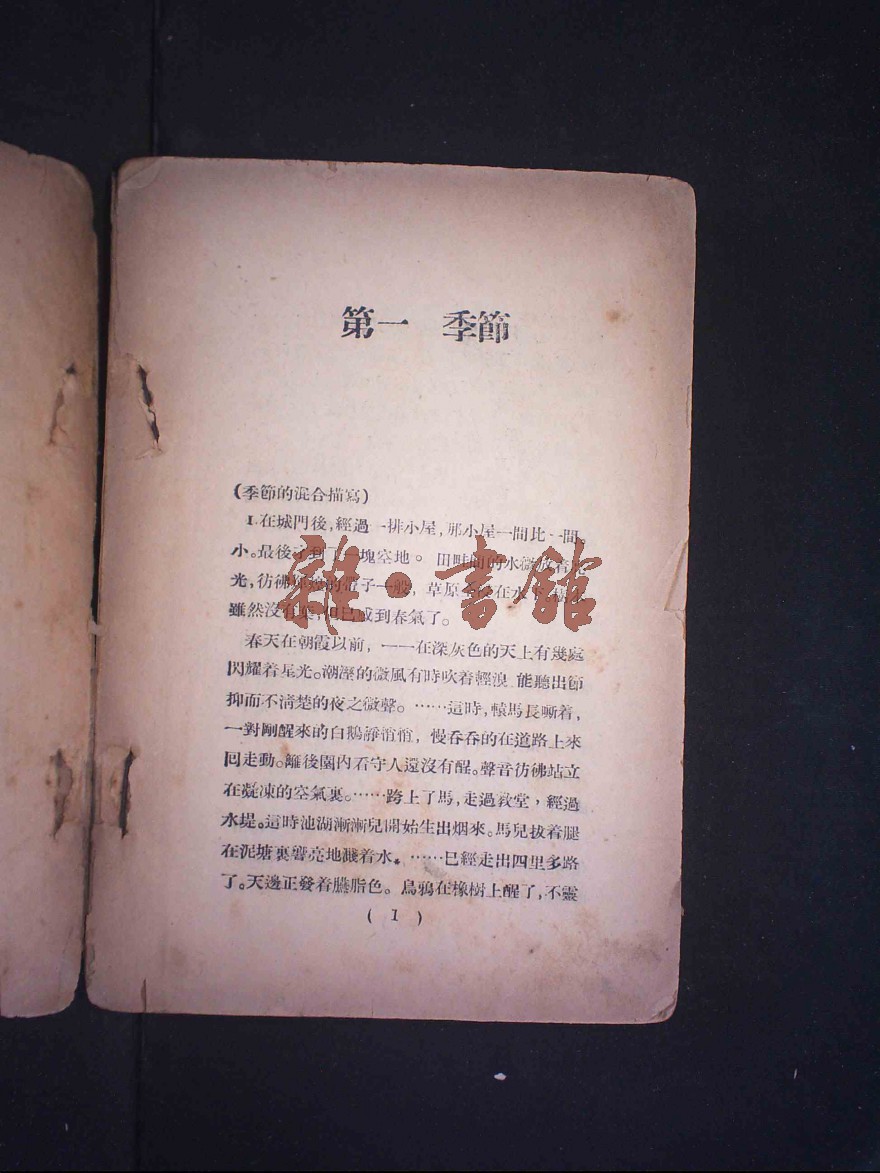 第一 季節
(季節的混合描寫)
I.在城門後,經過一排小屋,那小屋一間比一間。
小。最後才到了一塊空地。 田畦間的水微放着
光,彷彿 的帶子一般, 草原 在水下,
雖然沒有葉,但已感到春氣了。
春天在朝霞以前,——在深灰色的天上有幾處
閃耀着星光。潮溼的微風有時吹着輕浪 能聽出節
抑而不清楚的夜之微聲。……這時,轅馬長嘶着,
一對剛醒來的白鵝靜悄悄, 慢吞吞的在道路上來
回走動。籬後園內看守人還沒有醒。聲音彷彿站立
在凝凍的空氣裏。……跨上了馬,走過教堂,經過
水堤。這時池湖漸漸兒開始生出烟來。馬兒拔着腿
在泥塘裏響亮地濺着水。……已經走出四里多路
了。天邊正發着臙脂色。 烏鴉在橡樹上醒了,不靈
( 1 )
雜·書館